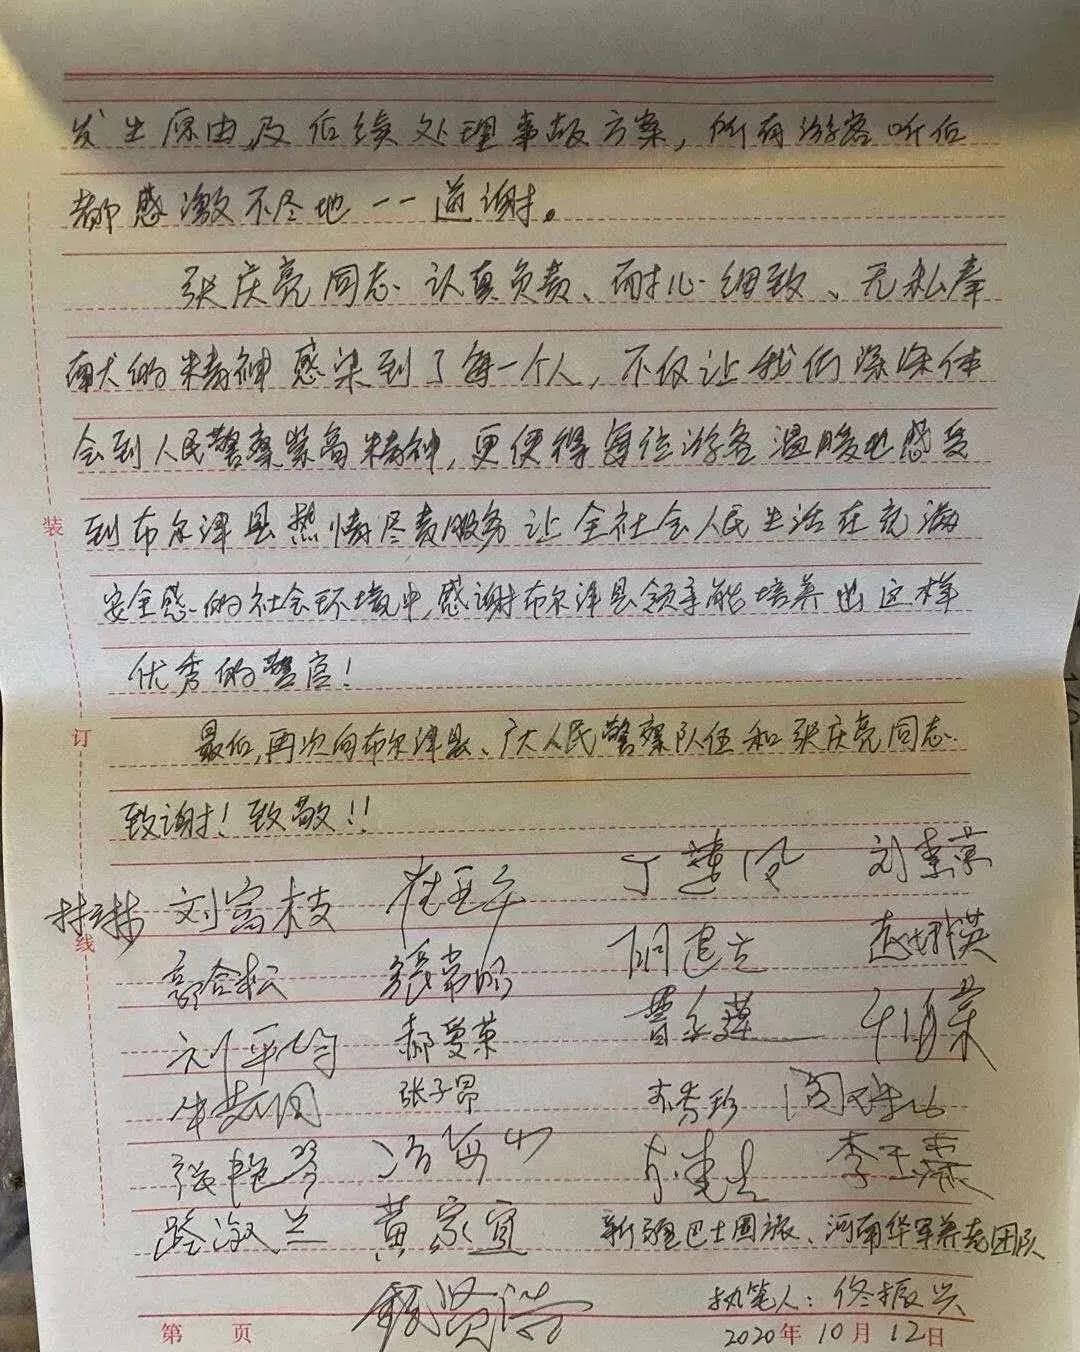 发生原由,及后续处理事故方案,所有游客听后
都感激不尽地一一道谢。
张庆亮同志认真负责、耐心细致、无私奉
献的精神感染到了每一个人,不仅让我们深深体
会到人民警察崇高精神,更使得每位游客温暖地感受
到布尔津县热情尽责服务让全社会人民生活在充满
安全感的社会环境中,感谢布尔津县领导能培养出这样
优秀的警官!
最后,再次向布尔津县、广大人民警察队伍和张庆亮同志
致谢!致敬!!
刘富枝 丁莲凤 刘素荣
郭合松 张常明
刘平均 郝爱荣
张子昂
张艳琴
路淑兰 黄家宜 新疆巴士国旅、河南华军养老团队
执笔人:佟振兴
第 页 2020年10月12日
装
订
线